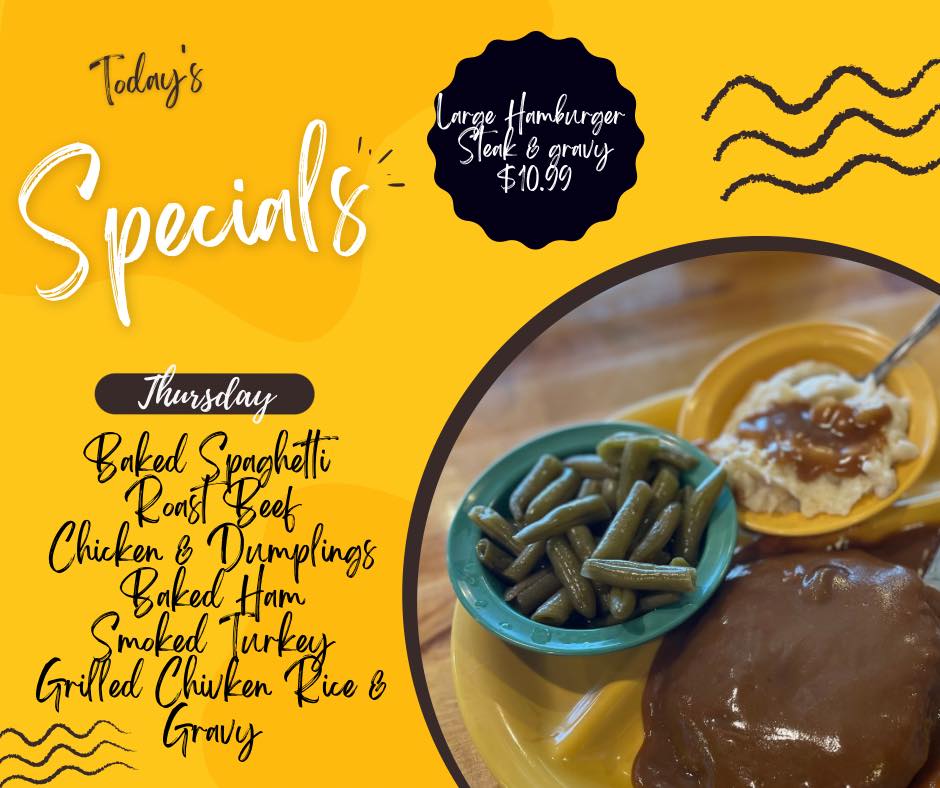 Today's
Specials
Large Hamburger
Steak & gravy
$10.99
Thursday
Baked Spaghetti
Roast Beef
Chicken & Dumplings
Baked Ham
Smoked Turkey
Grilled Chivken Rice &
Gravy